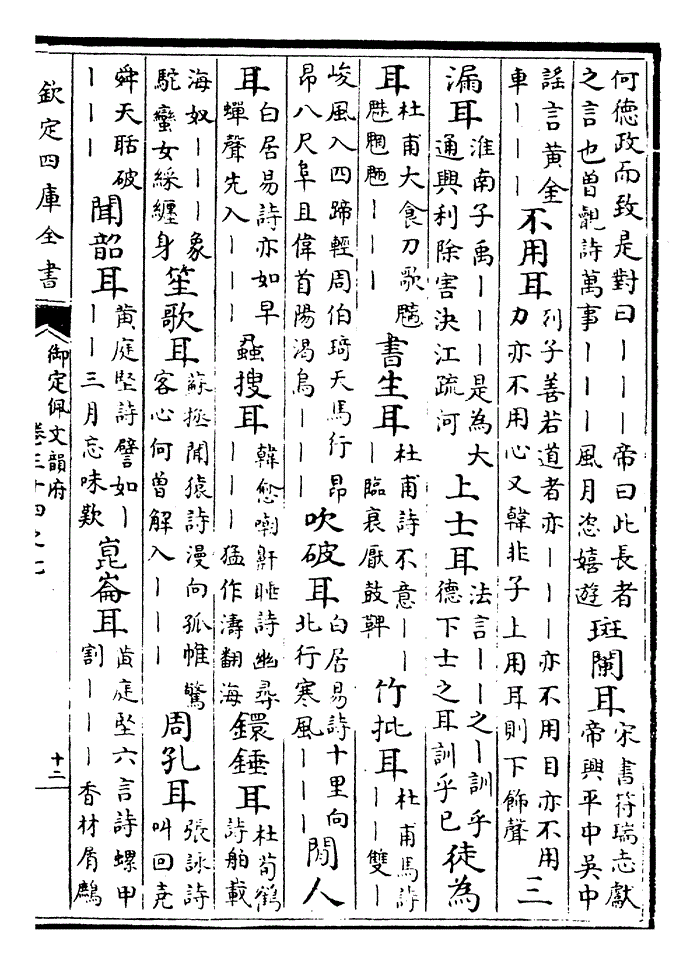 何德政而致是對曰｜｜｜帝曰此長者
之言也曾覿詩萬事｜｜｜風月恣嬉遊
斑闌耳
宋書符瑞志獻
帝興平中吳中
謡言黃金
車｜｜｜
不用耳
列子善若道者亦｜｜｜亦不用目亦不用
力亦不用心又韓非子上用耳則下飾聲
三
漏耳
淮南子禹｜｜｜是為大
通興利除害決江疏河
上士耳
法言｜｜之｜訓乎
德下士之耳訓乎巳
徒為
耳
杜甫大食刀歌魑
魅魍魎｜｜｜
書生耳
杜甫詩不意｜｜
｜臨衰厭鼓鞞
竹批耳
杜甫馬詩
｜｜雙｜
峻風入四蹄輕周伯琦天馬行昂
昂八尺阜且偉首陽渴烏｜｜｜
吹破耳
白居易詩十里向
北行寒風｜｜｜
閒人
耳
白居易詩亦如早
蟬聲先入｜｜｜
蝨搜耳
韓愈嘲鼾睡詩幽尋
｜｜｜｜猛作濤翻海
鐶錘耳
杜荀鶴
詩舶載
海奴｜｜｜象
駝蠻女綵纏身
笙歌耳
蘇拯聞猿詩漫向孤帷驚
客心何曾解入｜｜｜
周孔耳
張詠詩
叫回堯
舜天聒破
｜｜｜
聞韶耳
黃庭堅詩譬如｜
｜｜三月忘味歎
崑崙耳
黃庭堅六言詩螺甲
割｜｜｜香材屑鷓
欽定四庫全書
御定佩文韻府
卷三十四之七
十二